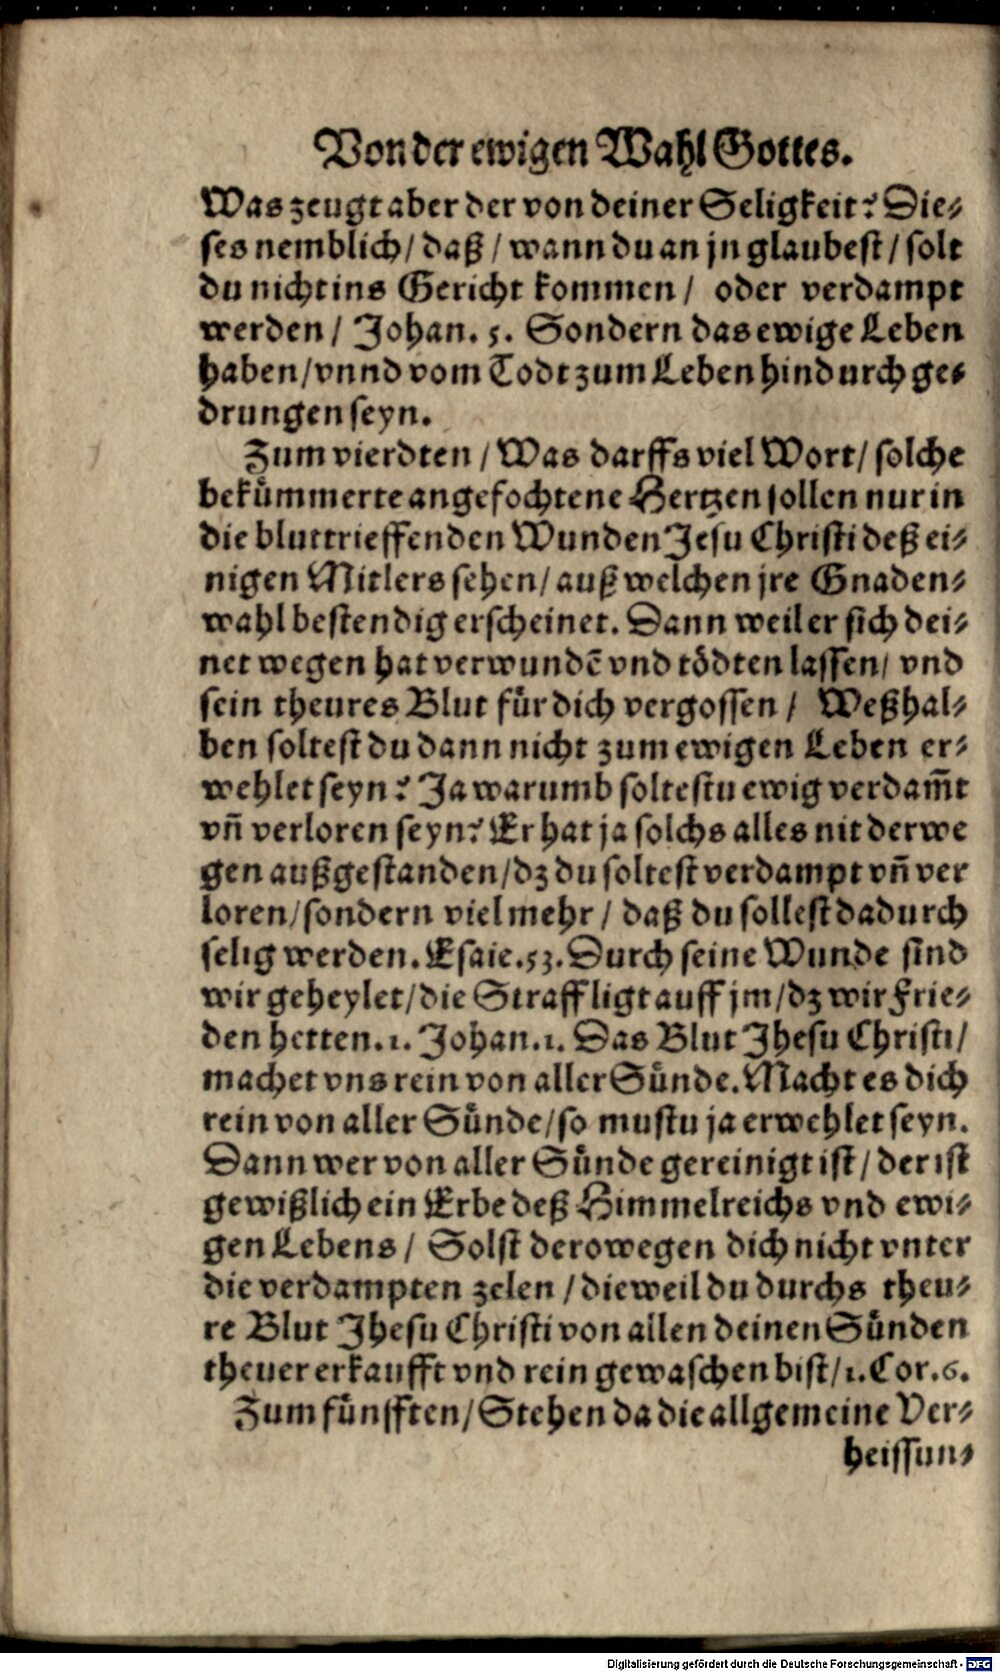 Von der ewigen Wahl Gottes.
Was zeugt aber der von deiner Seligkeit? Die-
ses nemblich / daß / wann du an jn glaubest / solt
du nicht ins Gericht kommen / oder verdampt
werden / Johan. 5. Sondern das ewige Leben
haben / vnnd vom Todt zum Leben hindurch ge-
drungen seyn.
Zum vierdten / Was darffs viel Wort / solche
bekümmerte angefochtene Hertzen sollen nur in
die bluttrieffenden Wunden Jesu Christi deß ei-
nigen Mitlers sehen / auß welchen jre Gnaden-
wahl bestendig erscheinet. Dann weil er sich dei-
net wegen hat verwundē vnd tödten lassen / vnd
sein theures Blut für dich vergossen / Weßhal-
ben soltest du dann nicht zum ewigen Leben er-
wehlet seyn? Ja warumb soltestu ewig verdam̃t
vñ verloren seyn? Er hat ja solchs alles nit derwe
gen außgestanden / dz du soltest verdampt vñ ver
loren / sondern viel mehr / daß du sollest dadurch
selig werden. Esaie. 53. Durch seine Wunde sind
wir geheylet / die Straff ligt auff jm / dz wir Frie-
den hetten. 1. Johan. 1. Das Blut Jhesu Christi /
machet vns rein von aller Sünde. Macht es dich
rein von aller Sünde / so mustu ja erwehlet seyn.
Dann wer von aller Sünde gereinigt ist / der ist
gewißlich ein Erbe deß Himmelreichs vnd ewi-
gen Lebens / Solst derowegen dich nicht vnter
die verdampten zelen / dieweil du durchs theu-
re Blut Jhesu Christi von allen deinen Sünden
theuer erkaufft vnd rein gewaschen bist / 1. Cor. 6.
Zum fünfften / Stehen da die allgemeine Ver-
heissun-
Digitalisierung gefördert durch die Deutsche Forschungsgemeinschaft - DFG